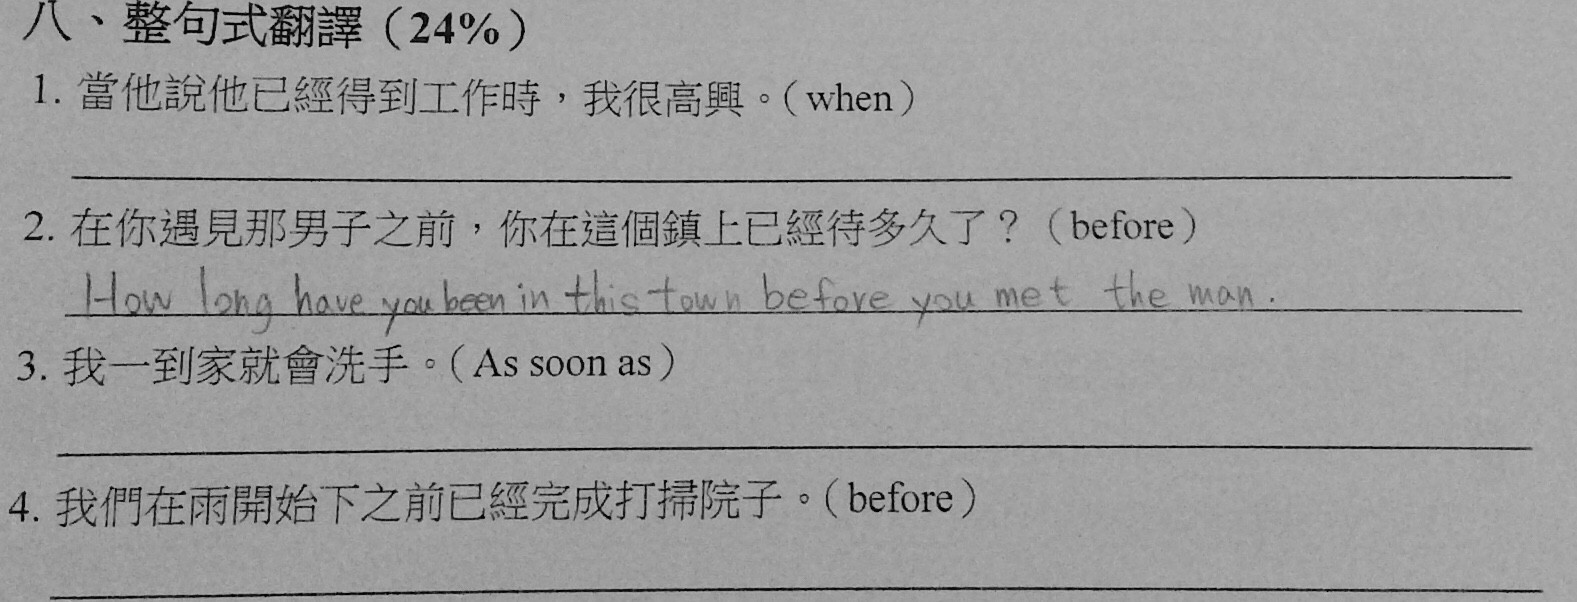 八、整句式翻譯（24%）
1. 當他說他已經得到工作時，我很高興。（when）
2. 在你遇見那男子之前，你在這個鎮上已經待多久了？（before）
How long have you been in this town before you met the man.
3. 我一到家就會洗手。（As soon as）
4. 我們在雨開始下之前已經完成打掃院子。（before）